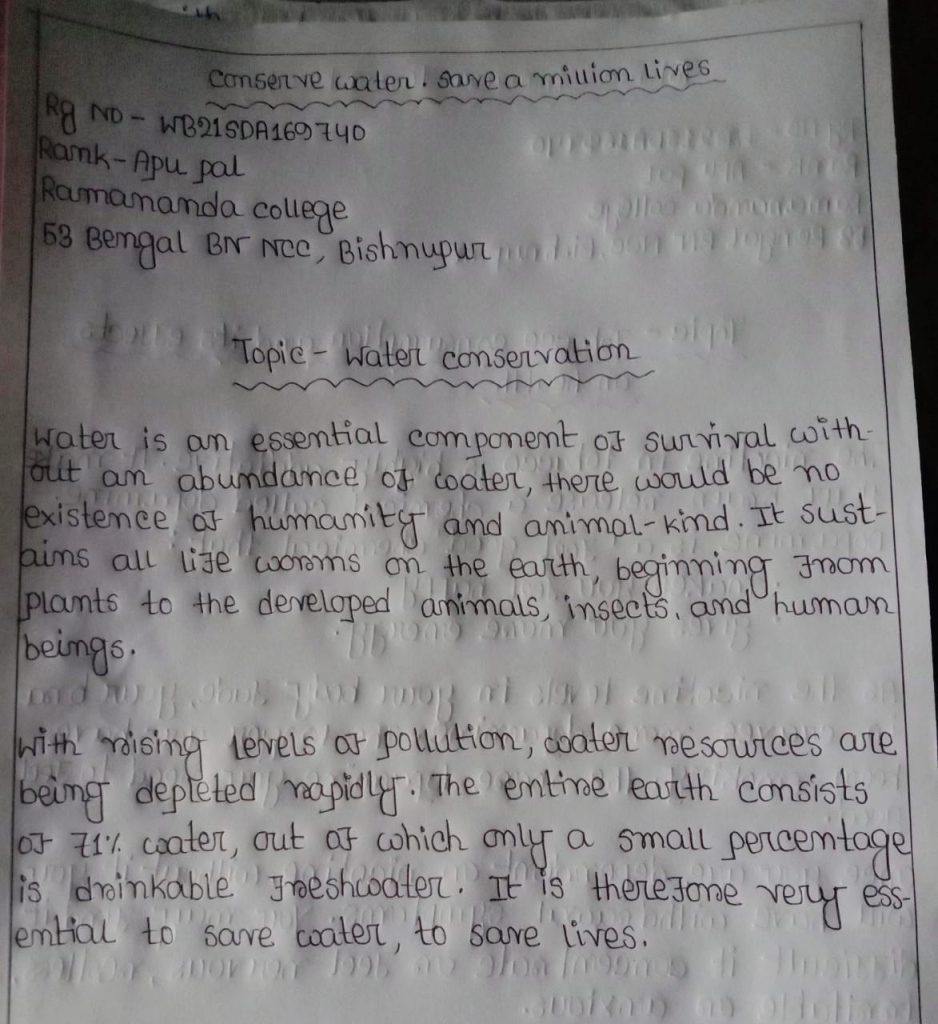 Conserve water. save a million lives
Rg NO - WB21SDA169740
Rank - Apu pal
Ramananda college
53 Bengal BN NCC, Bishnupur
Topic - Water conservation
Water is an essential component of survival with-
out an abundance of water, there would be no
existence of humanity and animal-kind. It sust-
ains all life worms on the earth, beginning from
plants to the developed animals, insects, and human
beings.
With rising levels of pollution, water resources are
being depleted rapidly. The entire earth consists
of 71% water, out of which only a small percentage
is drinkable freshwater. It is therefore very ess-
ential to save water, to save lives.